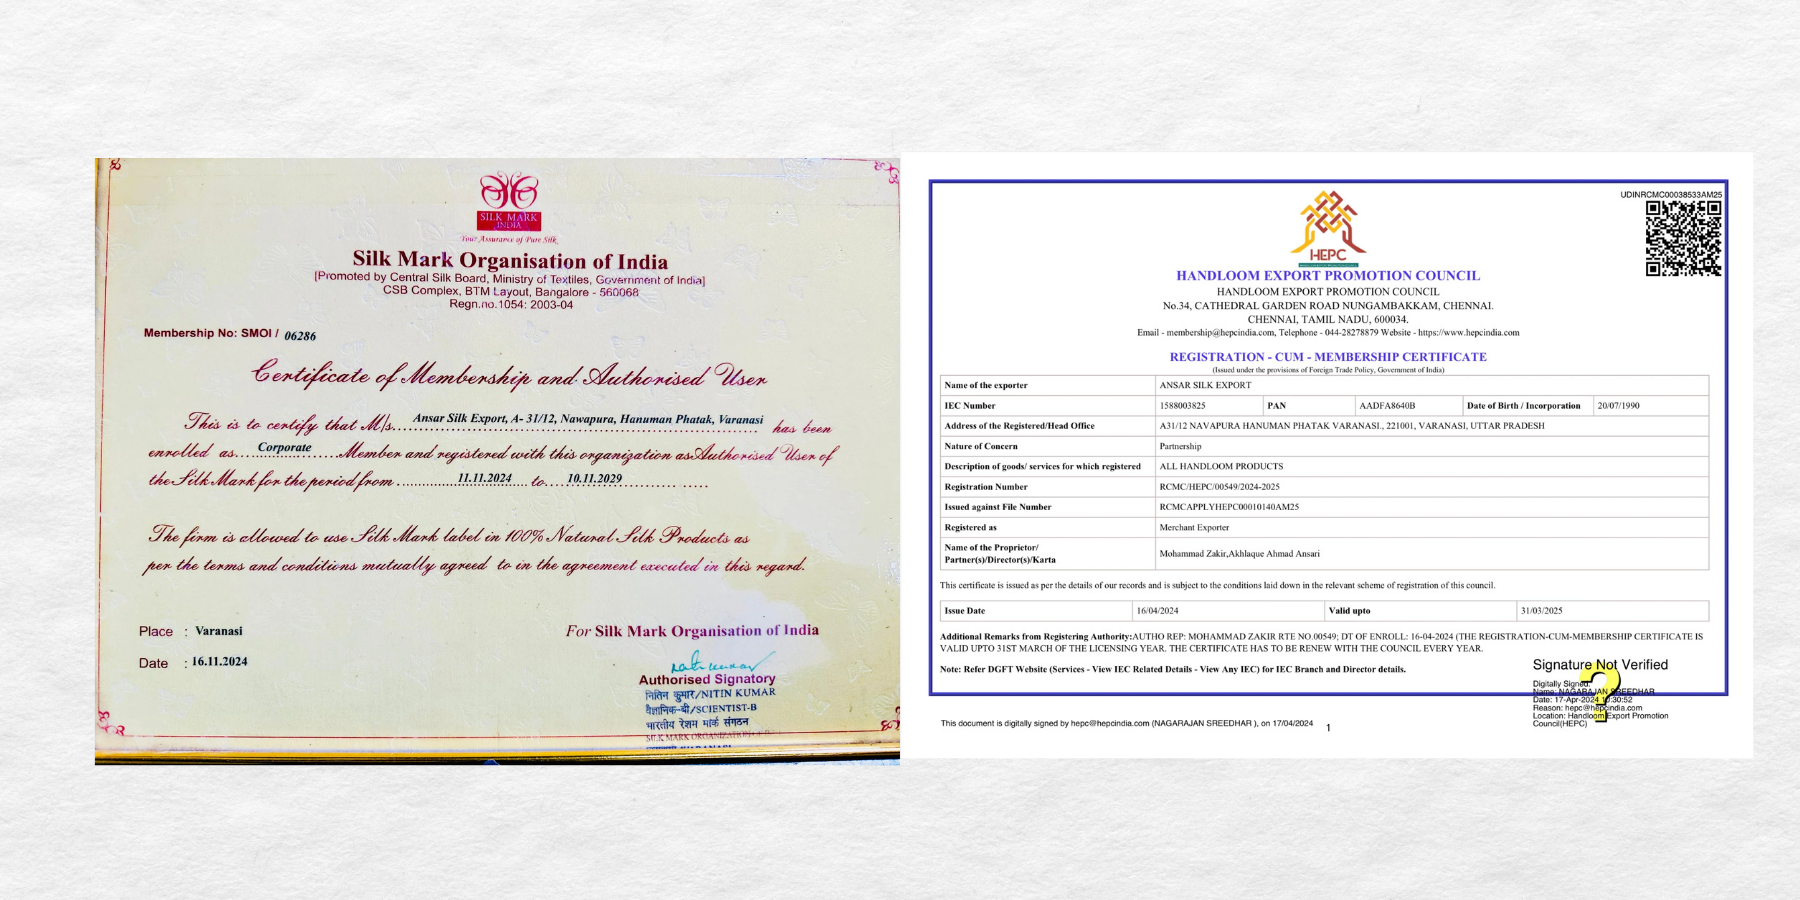 SILK MARK
INDIA
Your Assurance of Pure Silk
Silk Mark Organisation of India
[Promoted by Central Silk Board, Ministry of Textiles, Government of India]
CSB Complex, BTM Layout, Bangalore - 560068
Regn.no.1054: 2003-04
Membership No: SMOI / 06286
Certificate of Membership and Authorised User
This is to certify that M/s. Ansar Silk Export, A- 31/12, Nawapura, Hanuman Phatak, Varanasi has been
enrolled as Corporate Member and registered with this organization as Authorised User of
the Silk Mark for the period from 11.11.2024 to 10.11.2029
The firm is allowed to use Silk Mark label in 100% Natural Silk Products as
per the terms and conditions mutually agreed to in the agreement executed in this regard.
Place : Varanasi
Date : 16.11.2024
For Silk Mark Organisation of India
Authorised Signatory
नितिन कुमार/NITIN KUMAR
वैज्ञानिक-बी/SCIENTIST-B
भारतीय रेशम मार्क संगठन
SILK MARK ORGANIZATION
UDINRCMC00038533AM25
HEPC
HANDLOOM EXPORT PROMOTION COUNCIL
HANDLOOM EXPORT PROMOTION COUNCIL
No.34, CATHEDRAL GARDEN ROAD NUNGAMBAKKAM, CHENNAI.
CHENNAI, TAMIL NADU, 600034.
Email - membership@hepcindia.com, Telephone - 044-28278879 Website - https://www.hepcindia.com
REGISTRATION - CUM - MEMBERSHIP CERTIFICATE
(Issued under the provisions of Foreign Trade Policy, Government of India)
Name of the exporter ANSAR SILK EXPORT
IEC Number 1588003825 PAN AADFA8640B Date of Birth / Incorporation 20/07/1990
Address of the Registered/Head Office A31/12 NAVAPURA HANUMAN PHATAK VARANASI., 221001, VARANASI, UTTAR PRADESH
Nature of Concern Partnership
Description of goods/ services for which registered ALL HANDLOOM PRODUCTS
Registration Number RCMC/HEPC/00549/2024-2025
Issued against File Number RCMCAPPLYHEPC00010140AM25
Registered as Merchant Exporter
Name of the Proprietor/
Partner(s)/Director(s)/Karta Mohammad Zakir,Akhlaque Ahmad Ansari
This certificate is issued as per the details of our records and is subject to the conditions laid down in the relevant scheme of registration of this council.
Issue Date 16/04/2024 Valid upto 31/03/2025
Additional Remarks from Registering Authority:AUTHO REP: MOHAMMAD ZAKIR RTE NO.00549; DT OF ENROLL: 16-04-2024 (THE REGISTRATION-CUM-MEMBERSHIP CERTIFICATE IS
VALID UPTO 31ST MARCH OF THE LICENSING YEAR. THE CERTIFICATE HAS TO BE RENEW WITH THE COUNCIL EVERY YEAR.
Note: Refer DGFT Website (Services - View IEC Related Details - View Any IEC) for IEC Branch and Director details.
Signature Not Verified
Digitally Signed.
Name: NAGARAJAN SREEDHAR
Date: 17-Apr-2024 10:30:52
Reason: hepc@hepcindia.com
Location: Handloom Export Promotion
Council(HEPC)
This document is digitally signed by hepc@hepcindia.com (NAGARAJAN SREEDHAR ), on 17/04/2024
1